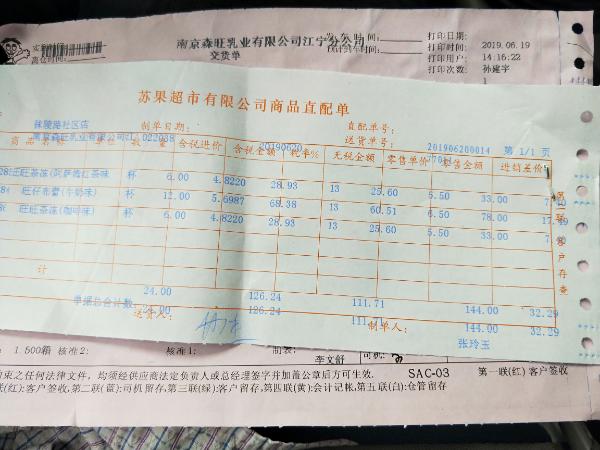 南京森旺乳业有限公司江宁分公司
交货单
打印日期:
打印时间: 2019.06.19
打印用户: 14:16:22
打印次数: 孙建宇
苏果超市有限公司商品直配单
秣陵路社区店 制单日期: 直配单号:
南京森旺乳业有限公司江 022038 送货单号: 201906200014 第 1/1 页
20190620
商品名称 单位 数量 含税进价 含税金额 税率% 无税金额 零售单价 零售金额 进销差价
杯 6.00 4.8220 28.93 13 25.60 5.50 33.00
旺仔布蕾(牛奶味) 杯 12.00 5.6987 68.38 13 60.51 6.50 78.00
旺旺茶冻(咖啡味) 杯 6.00 4.8220 28.93 13 25.60 5.50 33.00
计 24.00 126.24 111.71 144.00 32.29
单据总合计数: 24.00 126.24 111.71 144.00 32.29
送货人: 制单人: 张玲玉
1.500箱 核准2: 核准1: 制表: 李文舒 司机:
束之任何法律文件，均须经供应商法定负责人或总经理签字并加盖公章后方可生效. SAC-03 第一联(红) 客户签收
(红):客户签收,第二联(蓝):司机留存,第三联(绿):客户留存,第四联(黄):会计记帐,第五联(白):仓管留存